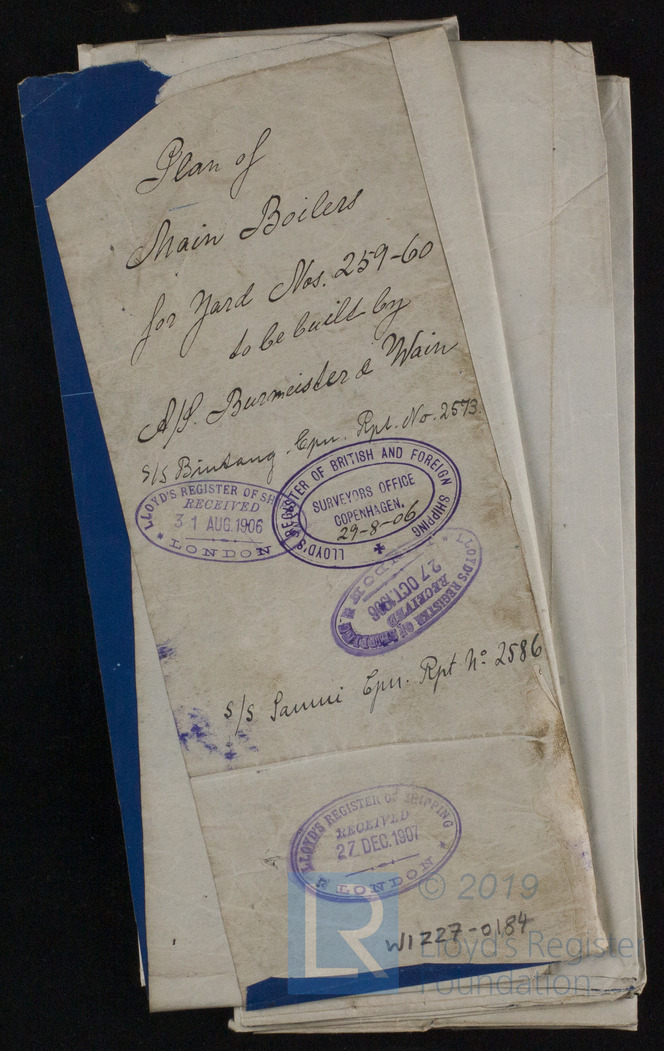 Plan of
Main Boilers
for Yard Nos. 259-60
to be built by
A/S. Burmeister & Wain
S/S Bintang Cpn. Rpt. No. 2573.
LLOYD'S REGISTER OF SH
RECEIVED
31 AUG.1906
LONDON
LLOYD'S REGISTER OF BRITISH AND FOREIGN SHIPPING
SURVEYORS OFFICE
COPENHAGEN.
29-8-06
LLOYD'S REGISTER OF
RECEIVED
27 OCT.1906
S/S Cpn. Rpt No. 2586
LLOYD'S REGISTER OF SHIPPING
RECEIVED
27 DEC.1907
LONDON
LR
© 2019
Lloyd's Register
Foundation
W1227-0184